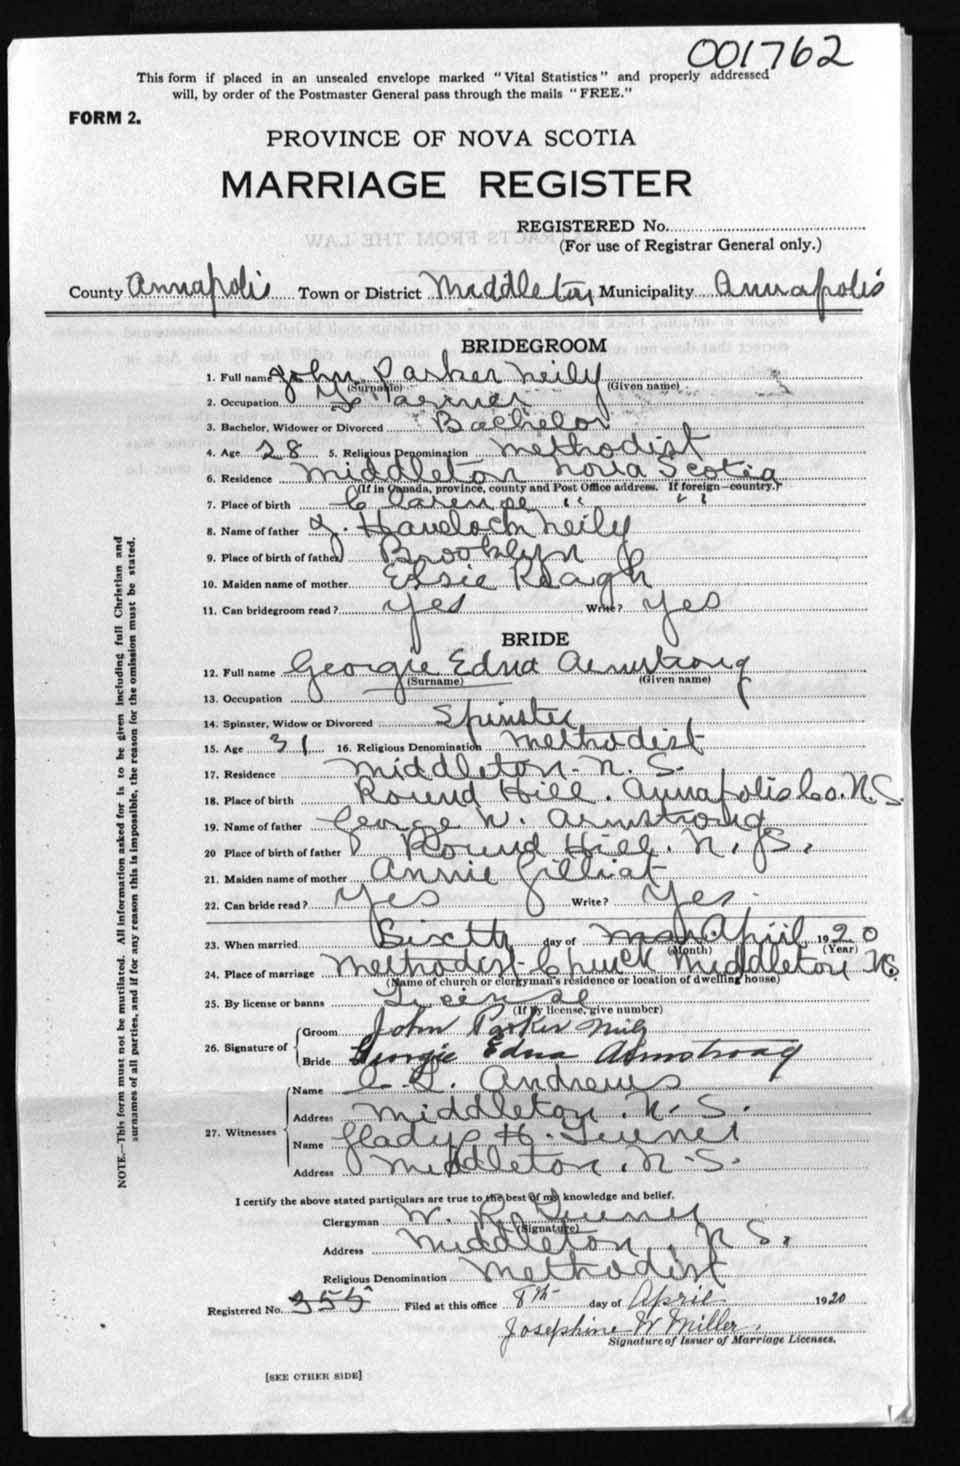 001762
This form if placed in an unsealed envelope marked "Vital Statistics" and properly addressed
will, by order of the Postmaster General pass through the mails "FREE."
FORM 2.
PROVINCE OF NOVA SCOTIA
MARRIAGE REGISTER
REGISTERED No.
(For use of Registrar General only.)
County Annapolis Town or District Middleton Municipality Annapolis
BRIDEGROOM
1. Full name John Parker Neily
(Surname) (Given name)
2. Occupation Farmer
3. Bachelor, Widower or Divorced Bachelor
4. Age 28 5. Religious Denomination Methodist
6. Residence Middleton Nova Scotia
(If in Canada, province, county and Post Office address. If foreign—country.)
7. Place of birth Clarence " " "
8. Name of father J. Havelock Neily
9. Place of birth of father Brooklyn
10. Maiden name of mother Elsie Reagh
11. Can bridegroom read? Yes Write? Yes
BRIDE
12. Full name Georgie Edna Armstrong
(Surname) (Given name)
13. Occupation
14. Spinster, Widow or Divorced Spinster
15. Age 31 16. Religious Denomination Methodist
17. Residence Middleton. N. S.
18. Place of birth Round Hill. Annapolis Co. N.S.
19. Name of father George W. Armstrong
20 Place of birth of father Round Hill. N. S.
21. Maiden name of mother Annie Gilliat
22. Can bride read? Yes Write? Yes
23. When married Sixth day of April 1920
(Month) (Year)
24. Place of marriage Methodist Church Middleton N.S.
(Name of church or clergyman's residence or location of dwelling house)
25. By license or banns License
(If by license, give number)
26. Signature of Groom John Parker Neily
Bride Georgie Edna Armstrong
27. Witnesses Name Andrews
Address Middleton. N. S.
Name Gladys H. Turner
Address Middleton. N. S.
I certify the above stated particulars are true to the best of my knowledge and belief.
Clergyman W. R. Turner
(Signature)
Address Middleton, N S.
Religious Denomination Methodist
Registered No. 355 Filed at this office 8th day of April 1920
Josephine W Miller.
Signature of Issuer of Marriage Licenses.
[SEE OTHER SIDE]
NOTE.—This form must not be mutilated. All information asked for is to be given including full Christian and
surnames of all parties, and if for any reason this is impossible, the reason for the omission must be stated.